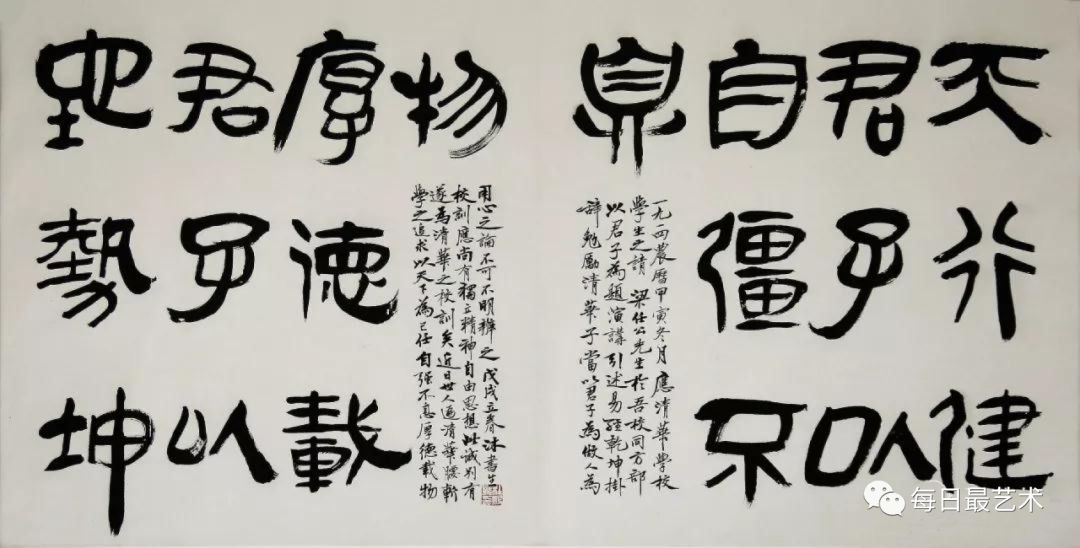 天行健
君子以
自彊不
息
一九一四農曆甲寅冬月應清華學校
學生之請 梁任公先生於吾校同方部
以君子為題演講引述易經乾坤掛
辭勉勵清華子當以君子為做人為
地勢坤
君子以
厚德載
物
學之追求以天下為已任自强不息厚德載物
遂為清華之校訓矣近日世人過清華
校訓應尚有獨立精神自由思想此誠別有
用心之論不可不明辨之 戊戌立春沐書生
每日最艺术